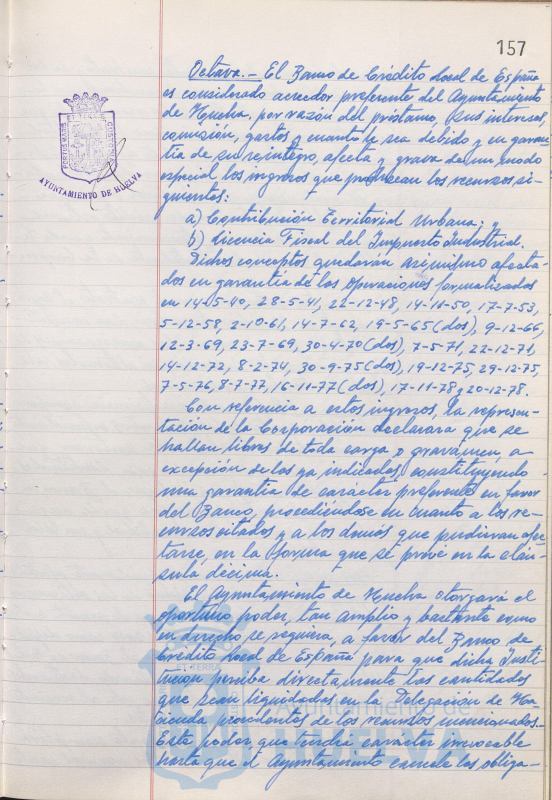 157
Octava.- El Banco de Crédito Local de España
es considerado acreedor preferente del Ayuntamiento
de Huelva, por razón del préstamo, sus intereses,
comisión, gastos y cuanto le sea debido y en garan-
tía de su reintegro, afecta y grava de un modo
especial los ingresos que produzcan los recursos si-
guientes:
a) Contribución Territorial Urbana; y
b) Licencia Fiscal del Impuesto Industrial.
Dichos conceptos quedarán asimismo afecta-
dos en garantía de las operaciones formalizadas
en 14-5-40, 28-5-41, 22-12-48, 14-11-50, 17-7-53,
5-12-58, 2-10-61, 14-7-62, 19-5-65 (dos), 9-12-66,
12-3-69, 23-7-69, 30-4-70 (dos), 7-5-71, 22-12-71,
14-12-72, 8-2-74, 30-9-75 (dos), 19-12-75, 29-12-75,
7-5-76, 8-7-77, 16-11-77 (dos), 17-11-78 y 20-12-78.
Con referencia a estos ingresos, la represen-
tación de la Corporación declarara que se
hallan libres de toda carga o gravámen, a
excepción de los ya indicados, constituyendo
una garantía de carácter preferente en favor
del Banco, procediéndose en cuanto a los re-
cursos citados y a los demás que pudieran afec-
tarse, en la forma que se prevé en la cláu-
sula décima.
El Ayuntamiento de Huelva otorgará el
oportuno poder, tan amplio y bastante como
en derecho se requiera, a favor del Banco de
Crédito Local de España para que dicha Insti-
tución perciba directamente las cantidades
que sean liquidadas en la Delegación de Ha-
cienda procedentes de los recursos mencionados.-
Este poder, que tendrá carácter irrevocable
hasta que el Ayuntamiento cancele las obliga-
AYUNTAMIENTO DE HUELVA
Ayuntamiento de
HUELVA